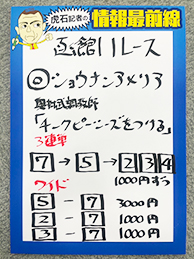 虎石記者の
情報最前線
函館11レース
◎ショウナンアメリア
「チークピーシーズをつける」
3連単
7→5→2 3 4
1000円ずつ
ワイド
5-7 3000円
2-7 1000円
3-7 1000円